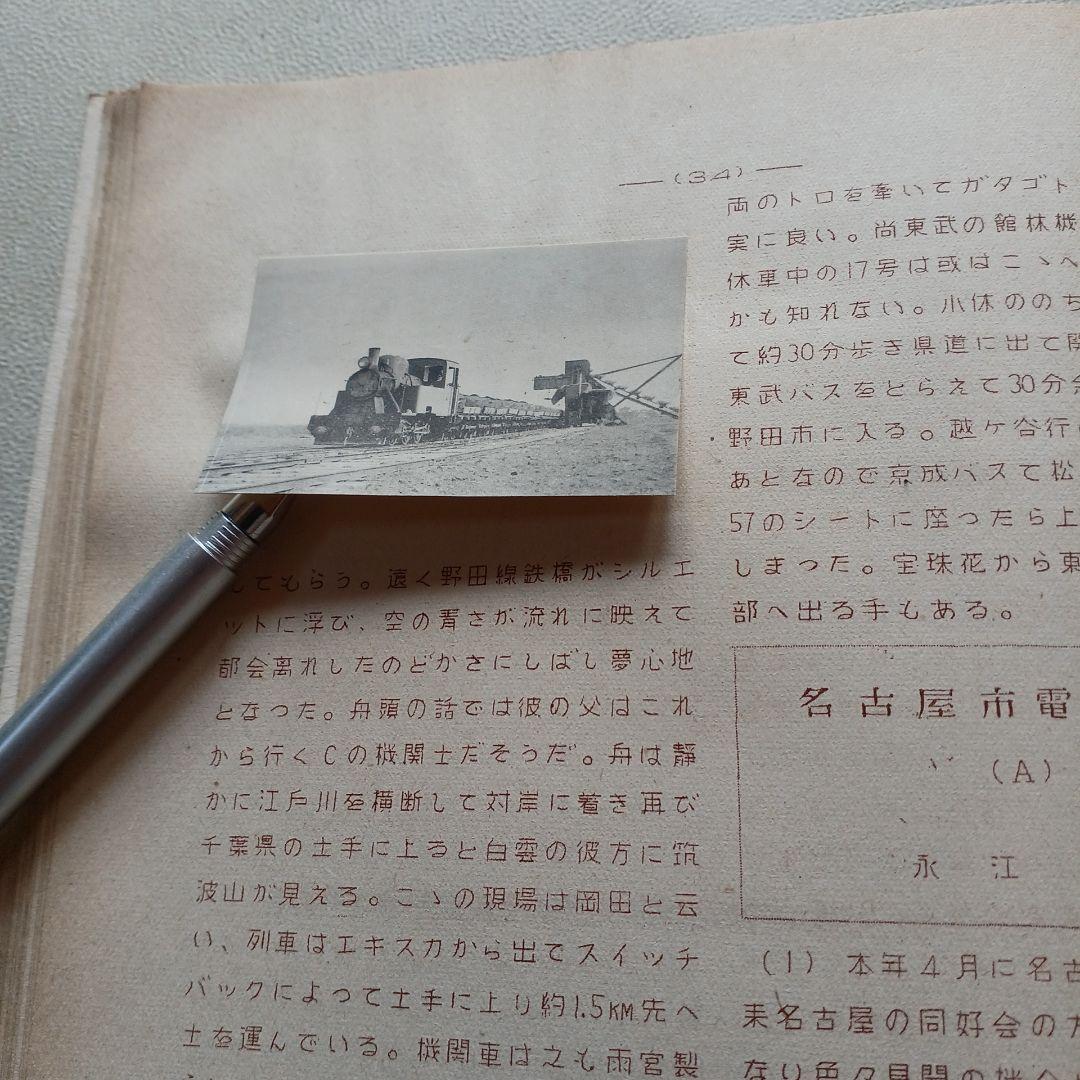 —(34)—
してもらう。遠く野田線鉄橋がシルエ
ットに浮び、空の青さが流れに映えて
都会离れしたのどかさにしばし夢心地
となった。舟頭の話では彼の父はこれ
から行くCの機関士だそうだ。舟は静
かに江戸川を横断して対岸に着き再び
千葉県の土手に上ると白雲の彼方に筑
波山が見える。こゝの現場は岡田と云
い、列車はエキスカから出でスイッチ
バックによって土手に上り約1.5KM先へ
土を運んでいる。機関車は之も雨宮製
両のトロを牽いてガタゴト
実に良い。尚東武の館林機
休車中の17号は或はこゝへ
かも知れない。小休ののち
て約30分歩き県道に出て関
東武バスをとらえて30分
野田市に入る。越ケ谷行
あとなので京成バスで松
57のシートに座ったら上
しまった。宝珠花から東
部へ出る手もある。
名古屋市電
(A)
永江
(1) 本年4月に名古
来名古屋の同好会の方
ない色々見聞の機会